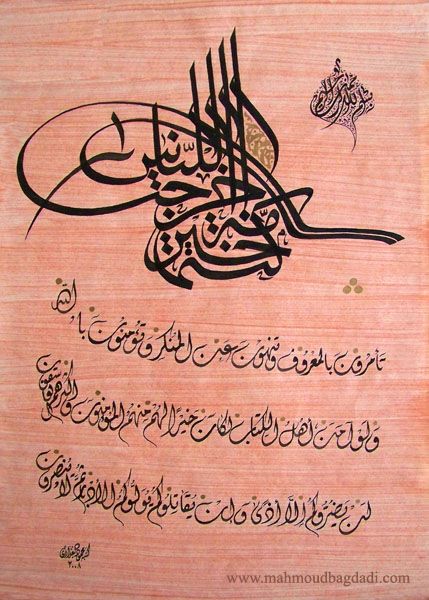 بسم الله الرحمن الرحيم
كنتم خير أمة أخرجت للناس
تأمرون بالمعروف وتنهون عن المنكر وتؤمنون بالله
ولو آمن أهل الكتاب لكان خيرا لهم منهم المؤمنون وأكثرهم الفاسقون
لن يضروكم إلا أذى وإن يقاتلوكم يولوكم الأدبار ثم لا ينصرون
٢٠٠٨
www.mahmoudbagdadi.com